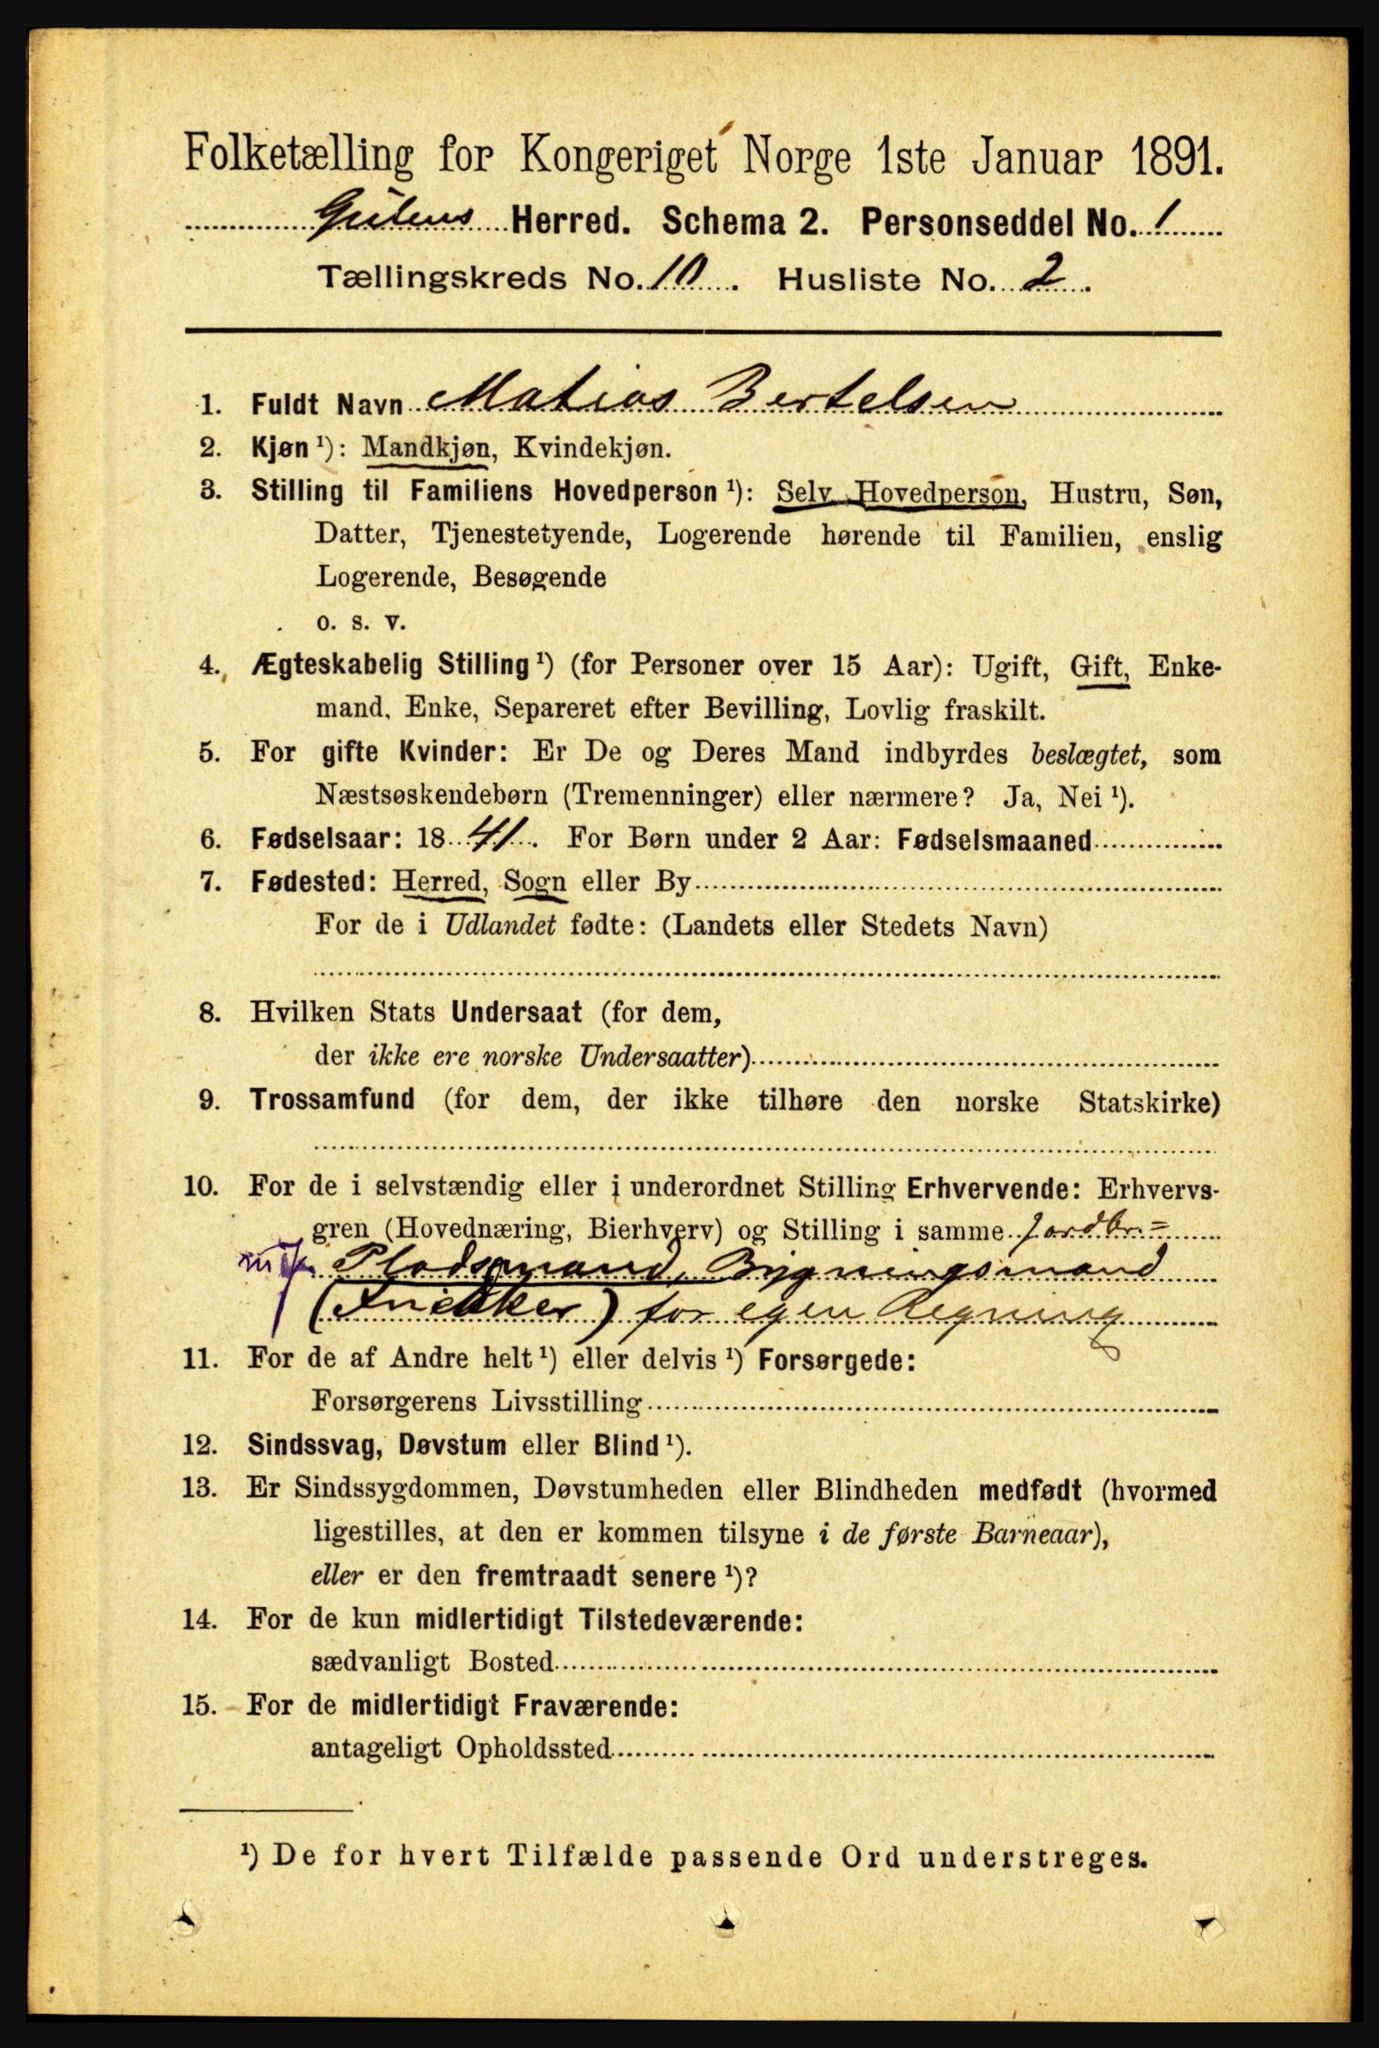 Folketælling for Kongeriget Norge 1ste Januar 1891.
Gulens Herred. Schema 2. Personseddel No. 1
Tællingskreds No. 10. Husliste No. 2.
1. Fuldt Navn Matias Bertelsen
2. Kjøn ¹): Mandkjøn, Kvindekjøn.
3. Stilling til Familiens Hovedperson ¹): Selv Hovedperson, Hustru, Søn,
Datter, Tjenestetyende, Logerende hørende til Familien, enslig
Logerende, Besøgende
o. s. v.
4. Ægteskabelig Stilling ¹) (for Personer over 15 Aar): Ugift, Gift, Enke-
mand, Enke, Separeret efter Bevilling, Lovlig fraskilt.
5. For gifte Kvinder: Er De og Deres Mand indbyrdes beslægtet, som
Næstsøskendebørn (Tremenninger) eller nærmere? Ja, Nei ¹).
6. Fødselsaar: 1841. For Børn under 2 Aar: Fødselsmaaned
7. Fødested: Herred, Sogn eller By
For de i Udlandet fødte: (Landets eller Stedets Navn)
8. Hvilken Stats Undersaat (for dem,
der ikke ere norske Undersaatter)
9. Trossamfund (for dem, der ikke tilhøre den norske Statskirke)
10. For de i selvstændig eller i underordnet Stilling Erhvervende: Erhvervs-
gren (Hovednæring, Bierhverv) og Stilling i samme Jordbr.=
Pladsmand, Bygningsmand
(Snekker) for egen Regning
11. For de af Andre helt ¹) eller delvis ¹) Forsørgede:
Forsørgerens Livsstilling
12. Sindssvag, Døvstum eller Blind ¹).
13. Er Sindssygdommen, Døvstumheden eller Blindheden medfødt (hvormed
ligestilles, at den er kommen tilsyne i de første Barneaar),
eller er den fremtraadt senere ¹)?
14. For de kun midlertidigt Tilstedeværende:
sædvanligt Bosted
15. For de midlertidigt Fraværende:
antageligt Opholdssted
¹) De for hvert Tilfælde passende Ord understreges.